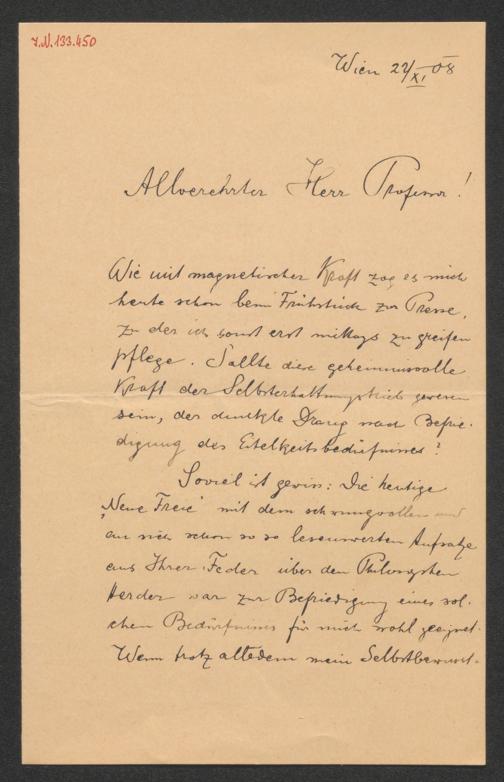 J.N. 133.450
Wien 22/XI 08
Allverehrter Herr Professor!
Wie mit magnetischer Kraft zog es mich
heute schon beim Frühstück zur Presse,
zu der ich sonst erst mittags zu greifen
pflege. Sollte diese geheimnisvolle
Kraft der Selbsterhaltungstrieb gewesen
sein, der dunkle Drang nach Befrie-
digung des Eitelkeitsbedürfnisses?
Soviel ist gewiss: Die heutige
„Neue Freie" mit dem schwungvollen und
an sich schon so so lesenswerten Aufsatze
aus Ihrer Feder über den Philosophen
Herder war zur Befriedigung eines sol-
chen Bedürfnisses für mich wohl geeignet.
Wenn trotz alledem mein Selbstbewusst-